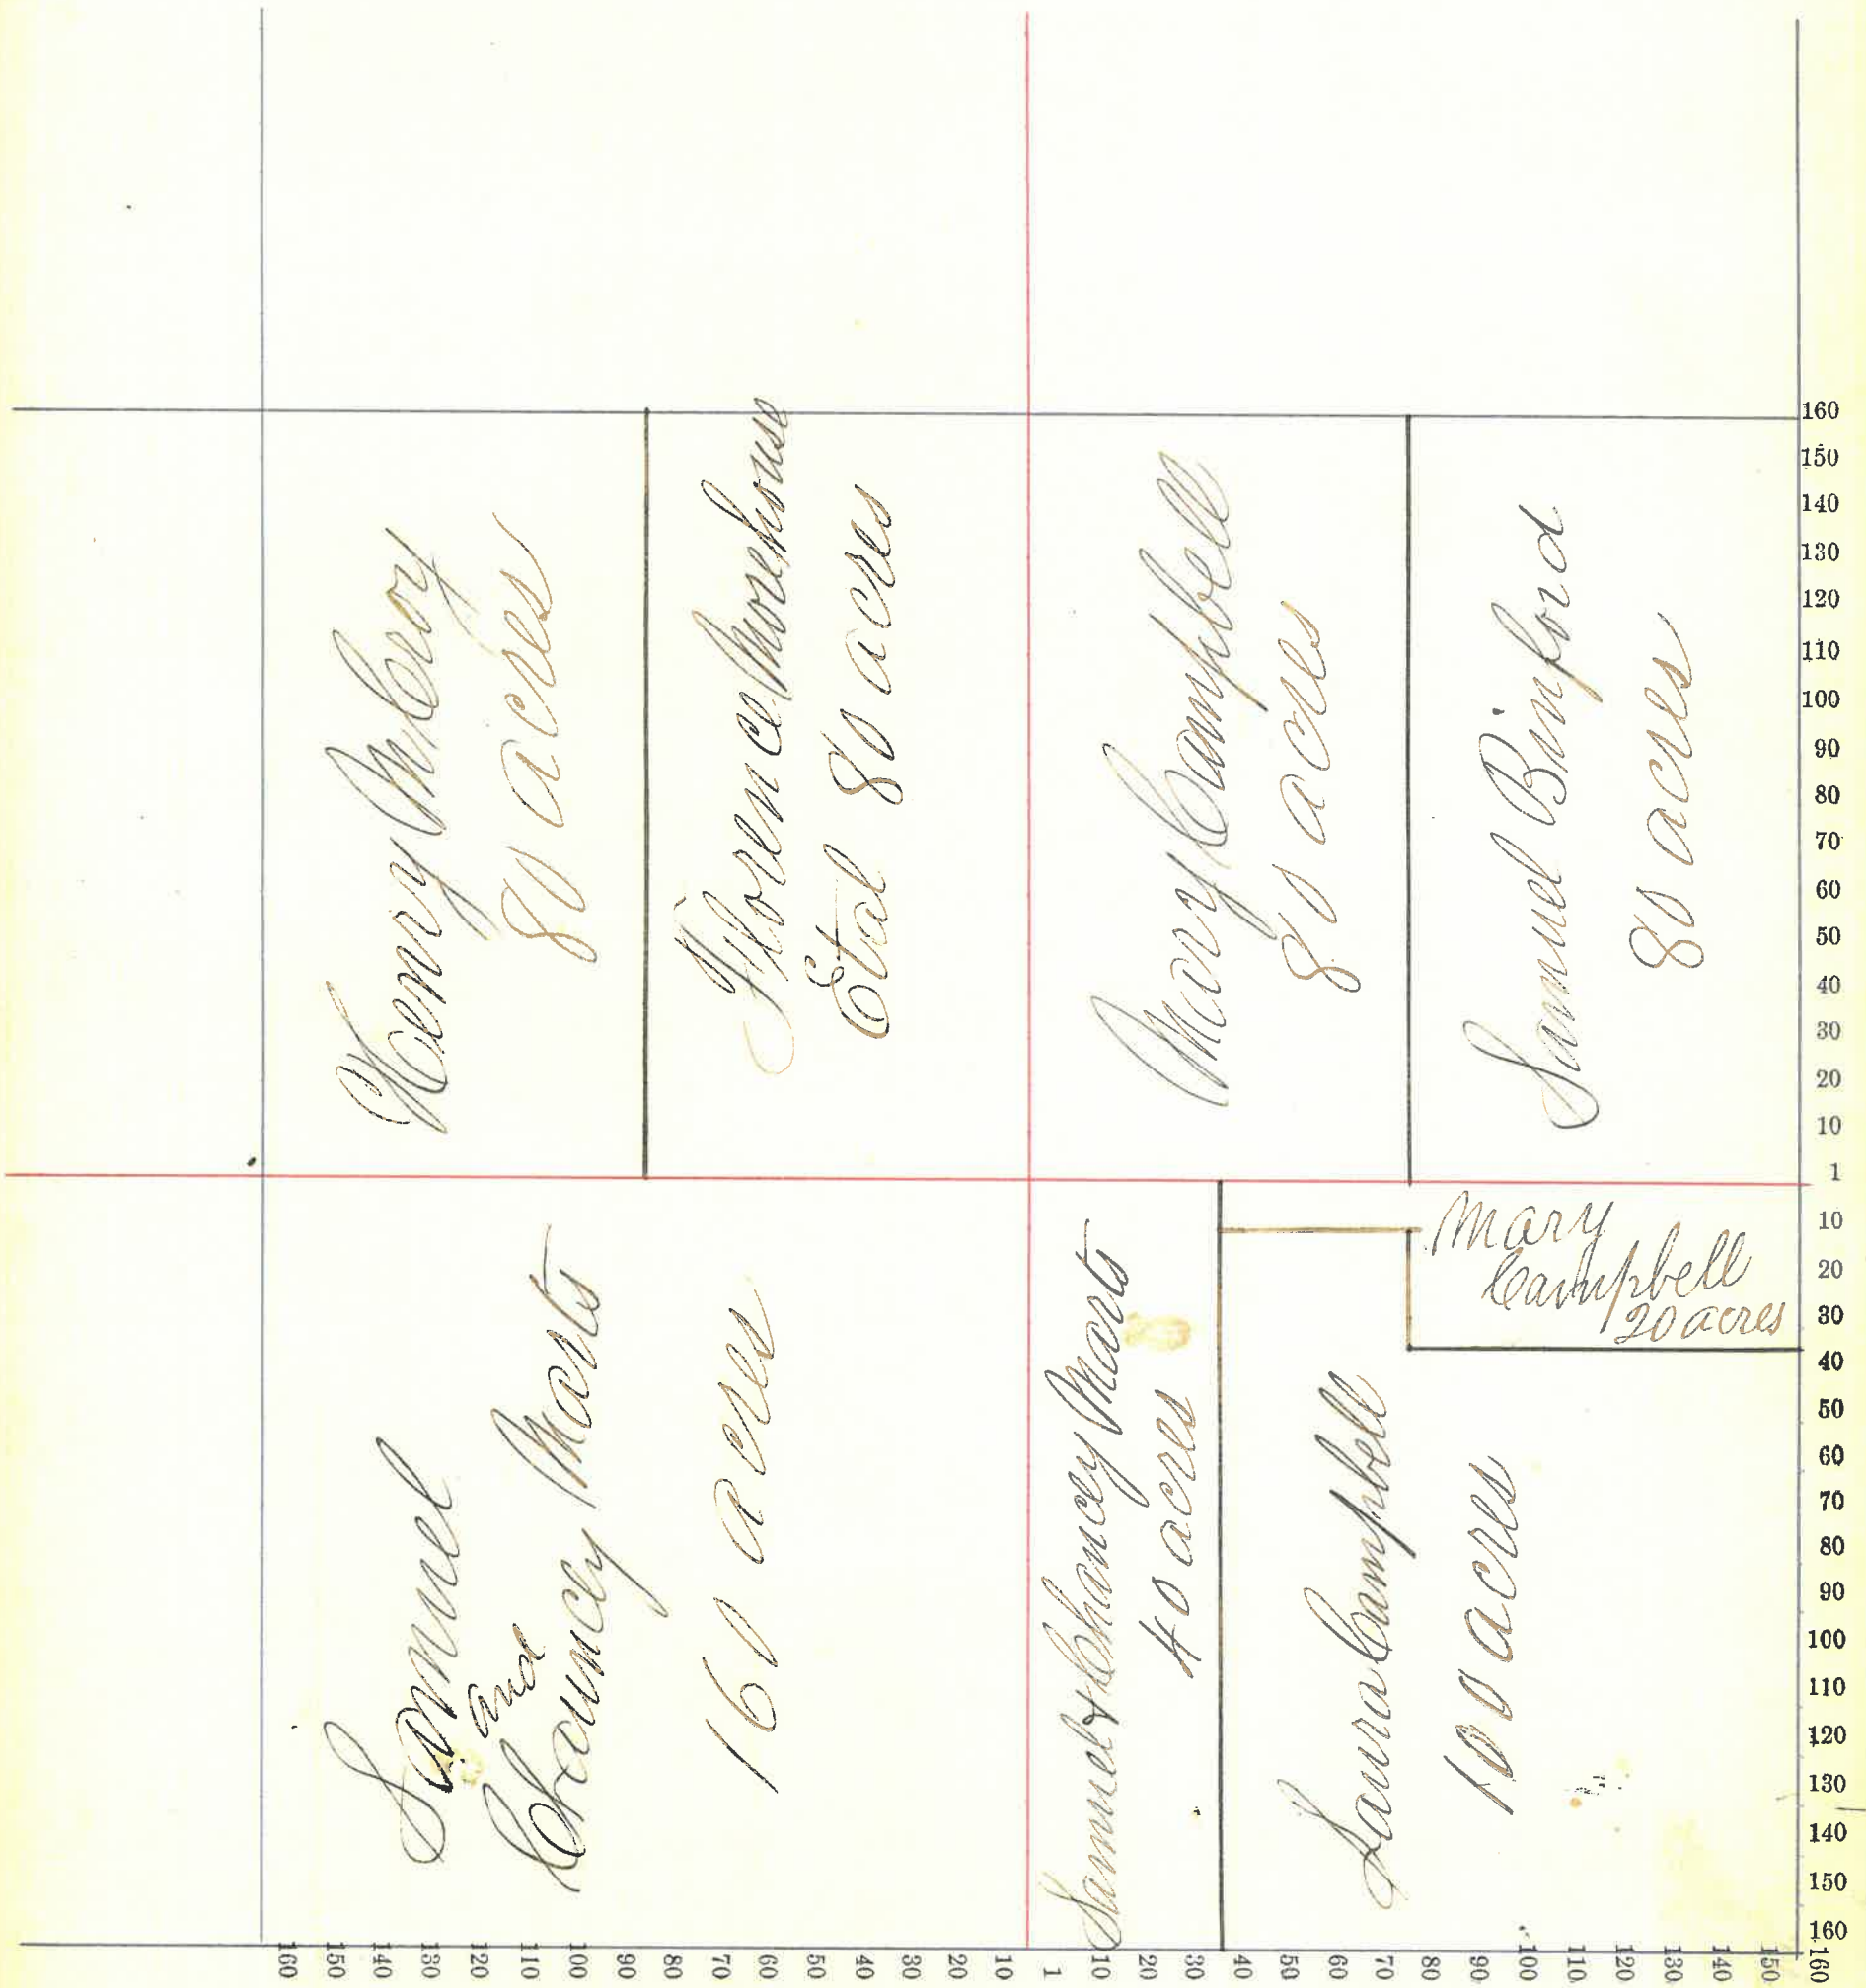 Henry McCroy
80 acres
Florence Morehouse
Etal 80 acres
Mary Campbell
80 acres
Samuel Binford
80 acres
Samuel
and
Chauncey Marts
160 acres
Samuel & Chancey Marts
40 acres
Mary
Campbell
20 acres
Laura Campbell
100 acres
160
150
140
130
120
110
100
90
80
70
60
50
40
30
20
10
1
10
20
30
40
50
60
70
80
90
100
110
120
130
140
150
160
160 150 140 130 120 110 100 90 80 70 60 50 40 30 20 10 1 10 20 30 40 50 60 70 80 90 100 110 120 130 140 150 160